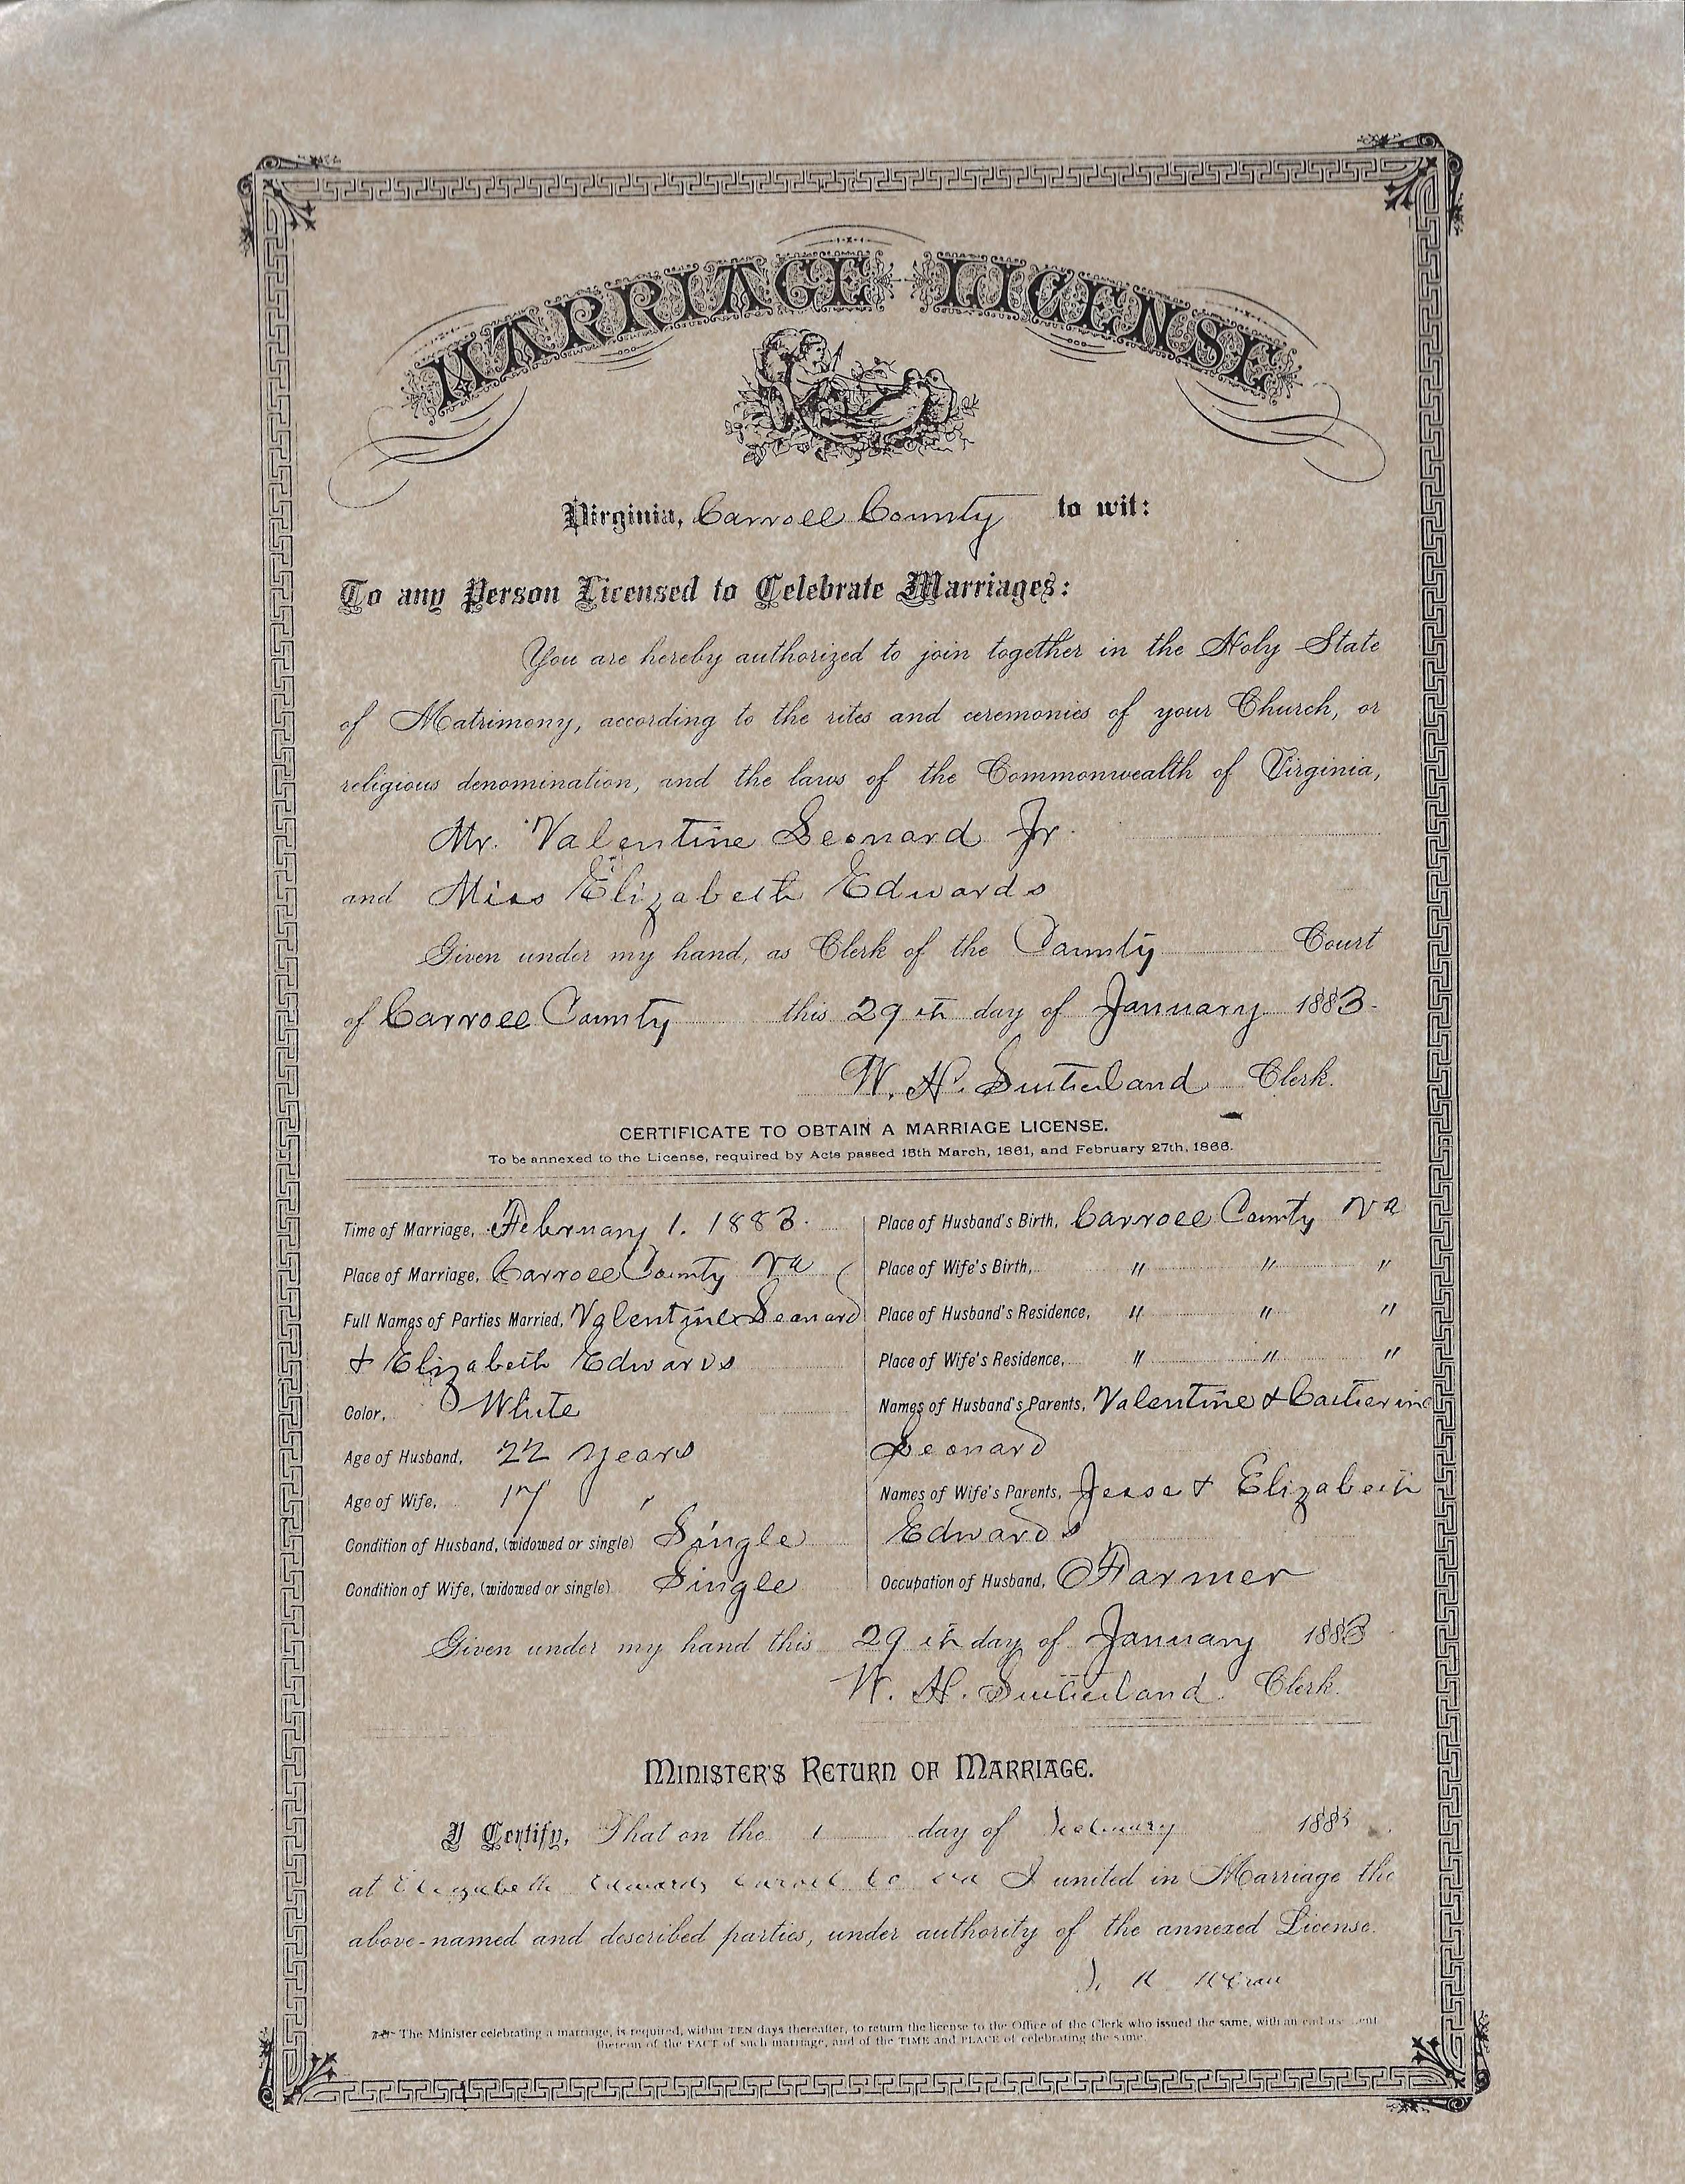 MARRIAGE LICENSE
Virginia, Carroll County to wit:
To any Person Licensed to Celebrate Marriages:
You are hereby authorized to join together in the Holy State
of Matrimony, according to the rites and ceremonies of your Church, or
religious denomination, and the laws of the Commonwealth of Virginia,
Mr. Valentine Leonard Jr.
and Miss Elizabeth Edwards
Given under my hand, as Clerk of the County Court
of Carroll County this 29th day of January 1883.
W. H. Sutherland Clerk.
CERTIFICATE TO OBTAIN A MARRIAGE LICENSE.
To be annexed to the License, required by Acts passed 15th March, 1861, and February 27th, 1866.
Time of Marriage, February 1. 1883.
Place of Marriage, Carroll County Va
Full Names of Parties Married, Valentine Leonard
& Elizabeth Edwards
Color, White
Age of Husband, 22 years
Age of Wife, 17 "
Condition of Husband, (widowed or single) Single
Condition of Wife, (widowed or single) Single
Place of Husband's Birth, Carroll County Va
Place of Wife's Birth, " " "
Place of Husband's Residence, " " "
Place of Wife's Residence, " " "
Names of Husband's Parents, Valentine & Catherine
Leonard
Names of Wife's Parents, Jesse & Elizabeth
Edwards
Occupation of Husband, Farmer
Given under my hand this 29th day of January 1883
W. H. Sutherland Clerk.
MINISTER'S RETURN OF MARRIAGE.
I Certify, That on the 1 day of February 1883
at Elizabeth Edwards Carroll Co Va I united in Marriage the
above-named and described parties, under authority of the annexed License.
The Minister celebrating a marriage, is required, within TEN days thereafter, to return the license to the Office of the Clerk who issued the same, with an endorsement
thereon of the FACT of such marriage, and of the TIME and PLACE of celebrating the same.